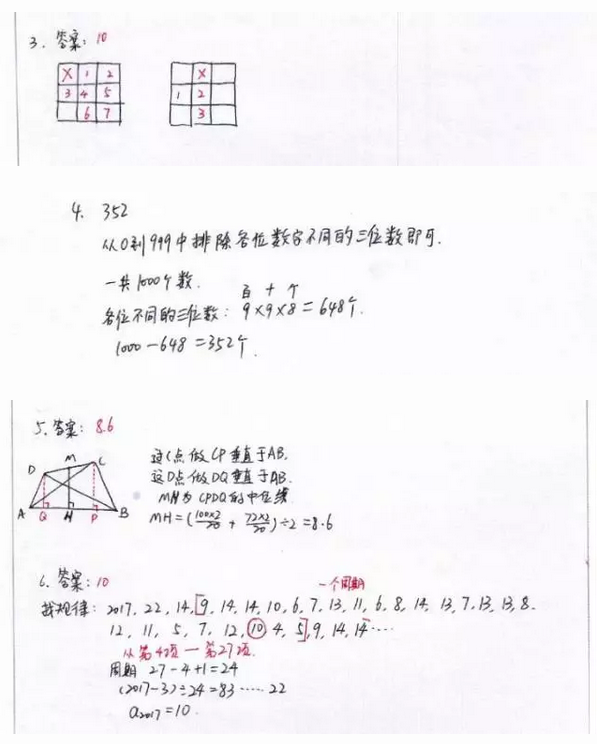 3. 答案: 10
X 1 2
3 4 5
6 7
X
1 2
3
4. 352
从0到999中排除各位数字不同的三位数即可.
一共1000个数.
百 十 个
各位不同的三位数: 9×9×8=648个.
1000-648=352个.
5. 答案: 8.6
过C点做CP垂直于AB.
过D点做DQ垂直于AB.
MH为CPDQ的中位线
MH=(100×2/20 + 72×2/20)÷2=8.6
D M C
A Q H P B
6. 答案: 10
一个周期
找规律: 2017, 22, 14, [9, 14, 14, 10, 6, 7, 13, 11, 6, 8, 14, 13, 7, 13, 13, 8.
12, 11, 5, 7, 12, 10 4, 5], 9, 14, 14……
从第4项一第27项.
周期 27-4+1=24
(2017-3)÷24=83……22
a2017=10.